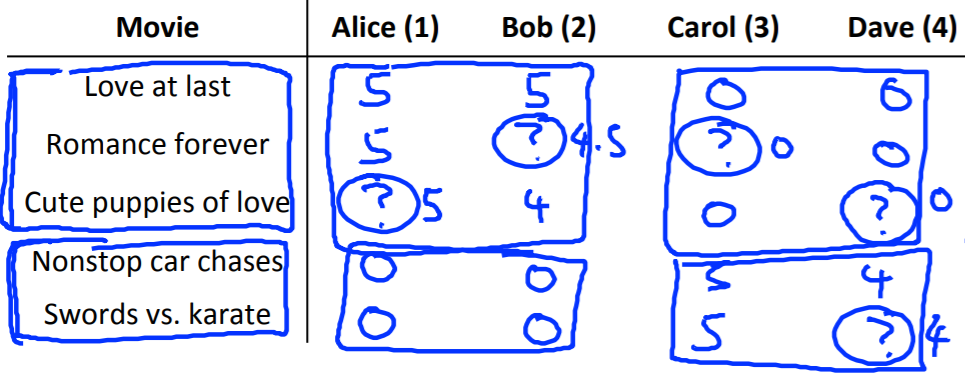 Movie Alice (1) Bob (2) Carol (3) Dave (4)
Love at last 5 5 0 0
Romance forever 5 ? 4.5 ? 0 0
Cute puppies of love ? 5 4 0 ? 0
Nonstop car chases 0 0 5 4
Swords vs. karate 0 0 5 ? 4